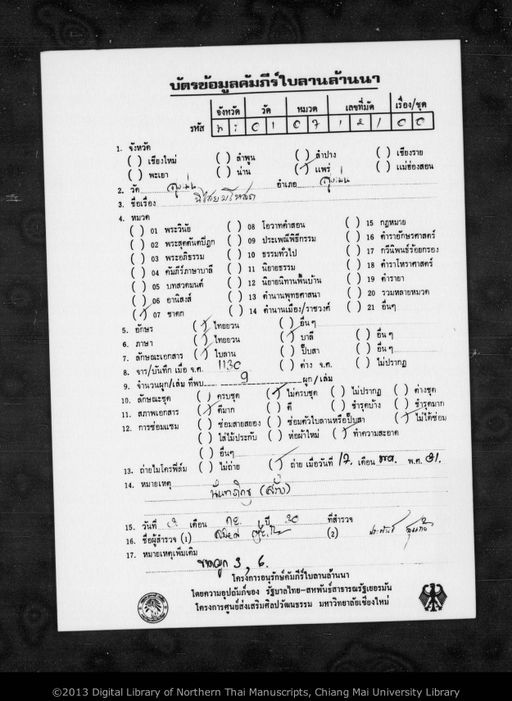 บัตรข้อมูลคัมภีร์ใบลานล้านนา
จังหวัด วัด หมวด เลขที่มัด เรื่อง/ชุด
รหัส 0 1 0 7 1 2 1 0 0
1. จังหวัด
( ) เชียงใหม่ ( ) ลำพูน ( ) ลำปาง ( ) เชียงราย
( ) พะเยา ( ) น่าน (/) แพร่ ( ) แม่ฮ่องสอน
2. วัด สูงเม่น อำเภอ สูงเม่น
3. ชื่อเรื่อง
4. หมวด
( ) 01 พระวินัย ( ) 08 โอวาทคำสอน ( ) 15 กฎหมาย
( ) 02 พระสุตตันตปิฎก ( ) 09 ประเพณีพิธีกรรม ( ) 16 ตำรายักษรศาสตร์
( ) 03 พระอภิธรรม ( ) 10 ธรรมทั่วไป ( ) 17 กวีนิพนธ์ร้อยกรอง
( ) 04 คัมภีร์ภาษาบาลี ( ) 11 นิยายธรรม ( ) 18 ตำราโหราศาสตร์
( ) 05 บทสวดมนต์ ( ) 12 นิยายนิทานพื้นบ้าน ( ) 19 ตำรายา
( ) 06 อานิสงส์ ( ) 13 ตำนานพุทธศาสนา ( ) 20 รวมหลายหมวด
(/) 07 ชาดก ( ) 14 ตำนานเมือง/ราชวงศ์ ( ) 21 อื่นๆ
5. อักษร (/) ไทยยวน ( ) อื่นๆ
6. ภาษา (/) ไทยยวน (/) บาลี ( ) อื่นๆ
7. ลักษณะเอกสาร (/) ใบลาน ( ) ปั๊บสา ( ) อื่นๆ
8. จาร/บันทึก เมื่อ จ.ศ. 1130 ( ) ต่าง จ.ศ. ( ) ไม่ปรากฏ
9. จำนวนผูก/เล่ม ที่พบ 9 ผูก/เล่ม
10. ลักษณะชุด ( ) ครบชุด (/) ไม่ครบชุด ( ) ไม่ปรากฏ ( ) ต่างชุด
11. สภาพเอกสาร (/) ดีมาก ( ) ดี ( ) ชำรุดบ้าง ( ) ชำรุดมาก
12. การซ่อมแซม ( ) ซ่อมสายสยอง ( ) ซ่อมตัวใบลานหรือปั๊บสา (/) ไม่ได้ซ่อม
( ) ใส่ไม้ประกับ ( ) ห่อผ้าใหม่ (/) ทำความสะอาด
( ) อื่นๆ
13. ถ่ายไมโครฟิล์ม ( ) ไม่ถ่าย (/) ถ่าย เมื่อวันที่ 17 เดือน พ.ศ. 31
14. หมายเหตุ
15. วันที่ เดือน ปี 30 ที่สำรวจ
16. ชื่อผู้สำรวจ (1) (2)
17. หมายเหตุเพิ่มเติม
3, 6.
โครงการอนุรักษ์คัมภีร์ใบลานล้านนา
โดยความอุปถัมภ์ของ รัฐบาลไทย-สหพันธ์สาธารณรัฐเยอรมัน
โครงการศูนย์ส่งเสริมศิลปวัฒนธรรม มหาวิทยาลัยเชียงใหม่
©2013 Digital Library of Northern Thai Manuscripts, Chiang Mai University Library